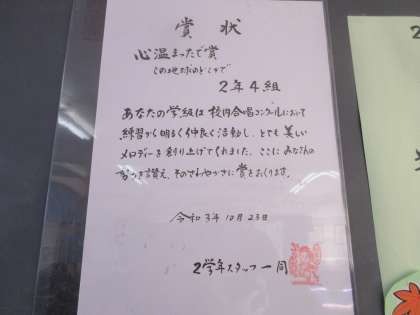 賞状
心温まったで賞
この地球のどこかで
2年4組
あなたの学級は校内合唱コンクールにおいて
練習から明るく仲良く活動し、とても美しい
メロデーを創り上げてくれました。ここにみなさんの
努力を讃え、そのさわやかさに賞をおくります。
令和3年10月23日
2学年スタッフ一同